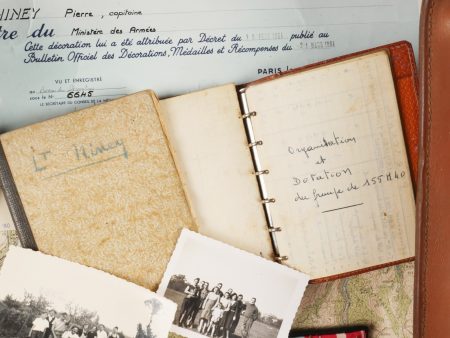 HINEY Pierre, capitaine
re du Ministère des Armées
Cette décoration lui a été attribuée par Décret du publié au
Bulletin Officiel des Décorations, Médailles et Récompenses du
PARIS
VU ET ENREGISTRÉ
sous le N° 6645
LE SECRÉTAIRE DU CONSEIL DE LA
Lt Hiney
Organisation
et
Dotation
du groupe de 155 H40